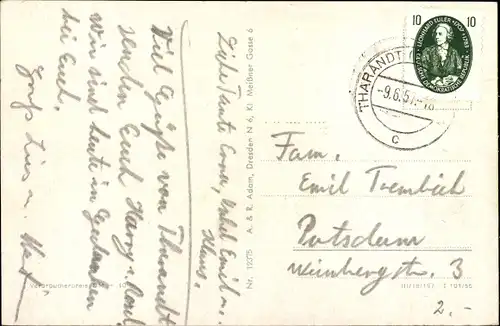 Liebe Tante Erna, Onkel Emil u.
Klaus.
Viel Grüße von Tharandt
senden Euch Harry u.
Wir sind heute in Gedanken
bei Euch.
Nr. 12375 A. & R. Adam, Dresden N 6, XI Meißner Gasse 6
Verbraucherpreis
10 10
LEONHARD EULER 1707-1783
DEUTSCHE DEMOKRATISCHE REPUBLIK
THARANDT
-9.6.57.-18
c
Fam.
Emil Trembich
Potsdam
Weinbergstr. 3
2,-